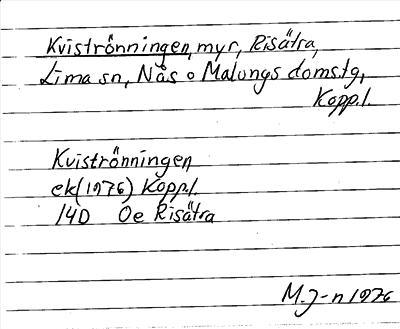 Kviströnningen, myr, Risätra,
Lima sn, Nås o Malungs doms.tg,
Kopp.l.
Kviströnningen
ek(1976) Kopp.l.
14D Oe Risätra
M.J-n 1976